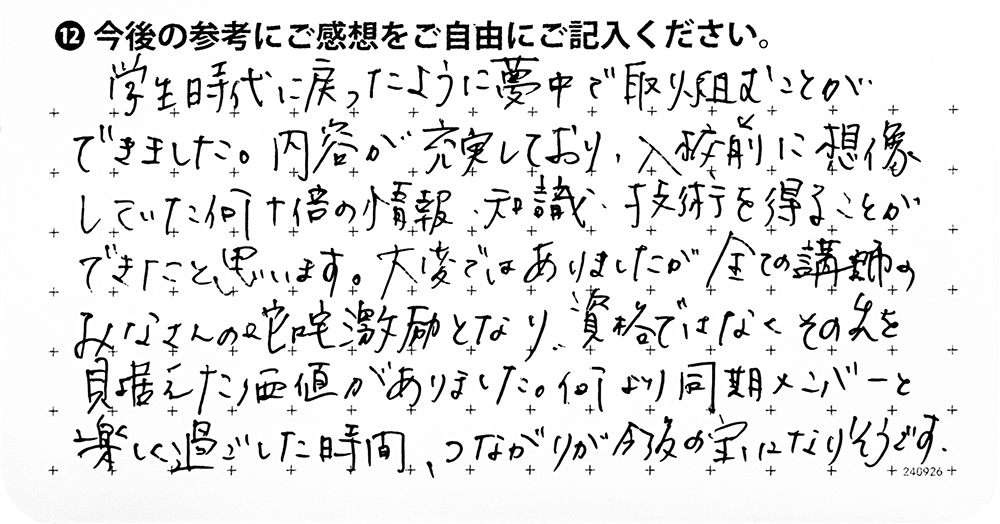 ⑫ 今後の参考にご感想をご自由にご記入ください。
学生時代に戻ったように夢中で取り組むことが
できました。内容が充実しており、入校前に想像
していた何十倍の情報、知識、技術を得ることが
できたと思います。大変ではありましたが全ての講師の
みなさんの叱咤激励となり、資格ではなくその先を
見据えた価値がありました。何より同期メンバーと
楽しく過ごした時間、つながりが今後の宝になりそうです。
240926